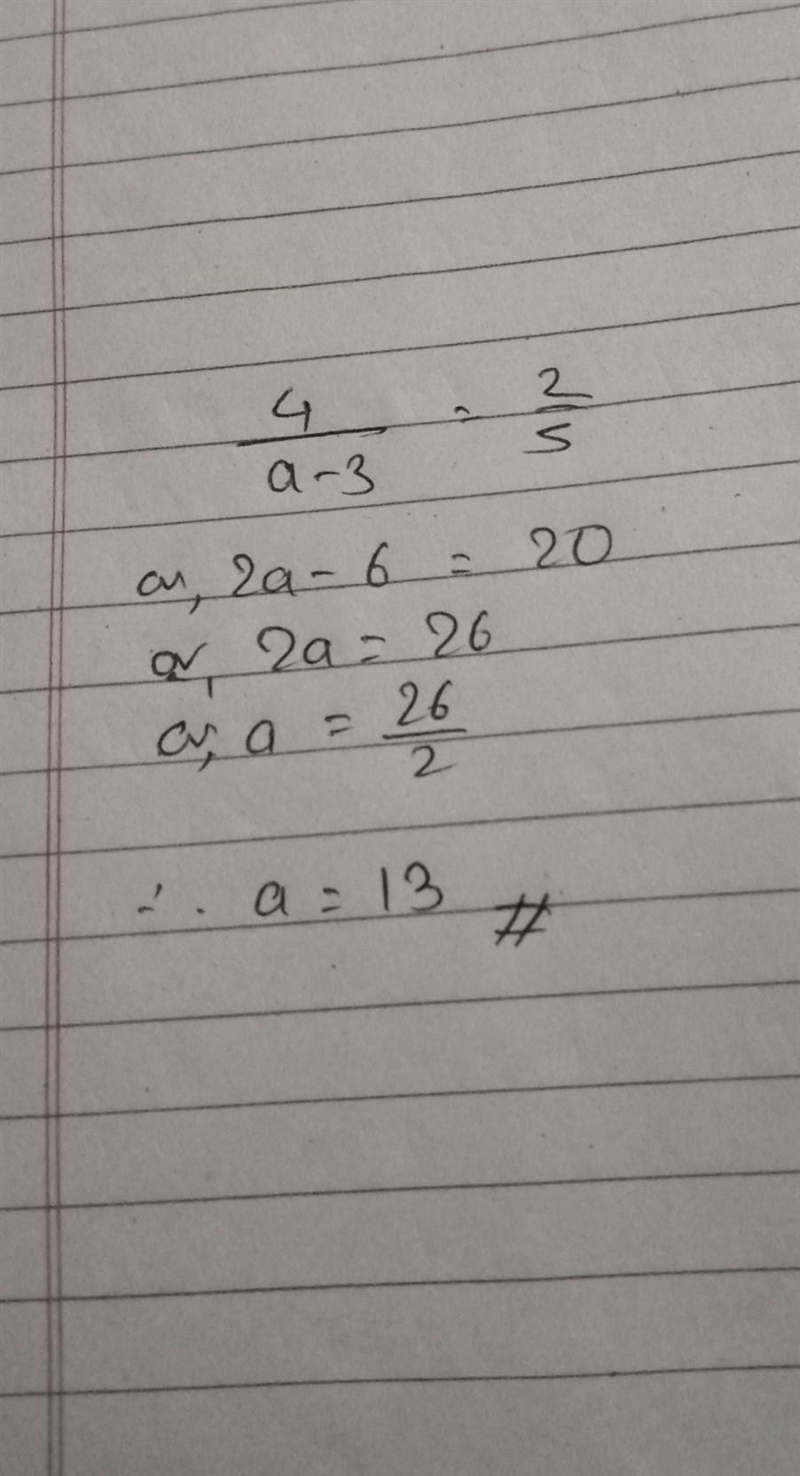 4/(a-3) = 2/5
or, 2a - 6 = 20
or, 2a = 26
or, a = 26/2
∴ a = 13 #